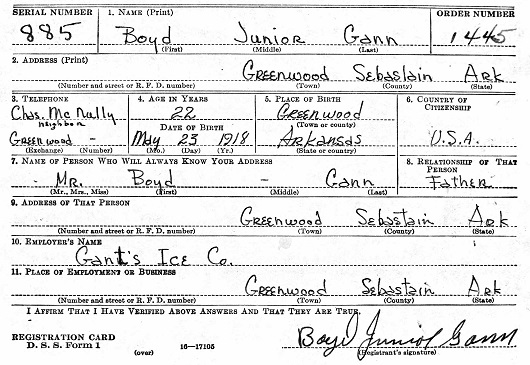 SERIAL NUMBER 1. NAME (Print) ORDER NUMBER
885 Boyd Junior Gann 1445
(First) (Middle) (Last)
2. ADDRESS (Print)
Greenwood Sebastain Ark
(Number and street or R. F. D. number) (Town) (County) (State)
3. TELEPHONE 4. AGE IN YEARS 5. PLACE OF BIRTH 6. COUNTRY OF CITIZENSHIP
Chas. McNally 22 Greenwood
neighbor DATE OF BIRTH (Town or county)
Greenwood - May 23 1918 Arkansas U.S.A.
(Exchange) (Number) (Mo.) (Day) (Yr.) (State or country)
7. NAME OF PERSON WHO WILL ALWAYS KNOW YOUR ADDRESS 8. RELATIONSHIP OF THAT PERSON
Mr. Boyd - Gann Father
(Mr., Mrs., Miss) (First) (Middle) (Last)
9. ADDRESS OF THAT PERSON
Greenwood Sebastain Ark
(Number and street or R. F. D. number) (Town) (County) (State)
10. EMPLOYER'S NAME
Gant's Ice Co.
11. PLACE OF EMPLOYMENT OR BUSINESS
Greenwood Sebastain Ark
(Number and street or R. F. D. number) (Town) (County) (State)
I AFFIRM THAT I HAVE VERIFIED ABOVE ANSWERS AND THAT THEY ARE TRUE.
REGISTRATION CARD Boyd Junior Gann
D. S. S. Form 1 (over) 16—17105 (Registrant's signature)